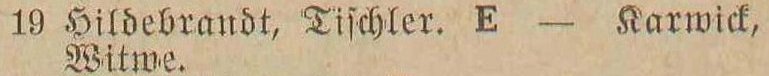 19 Hildebrandt, Tiſchler. E — Karwick,
Witwe.